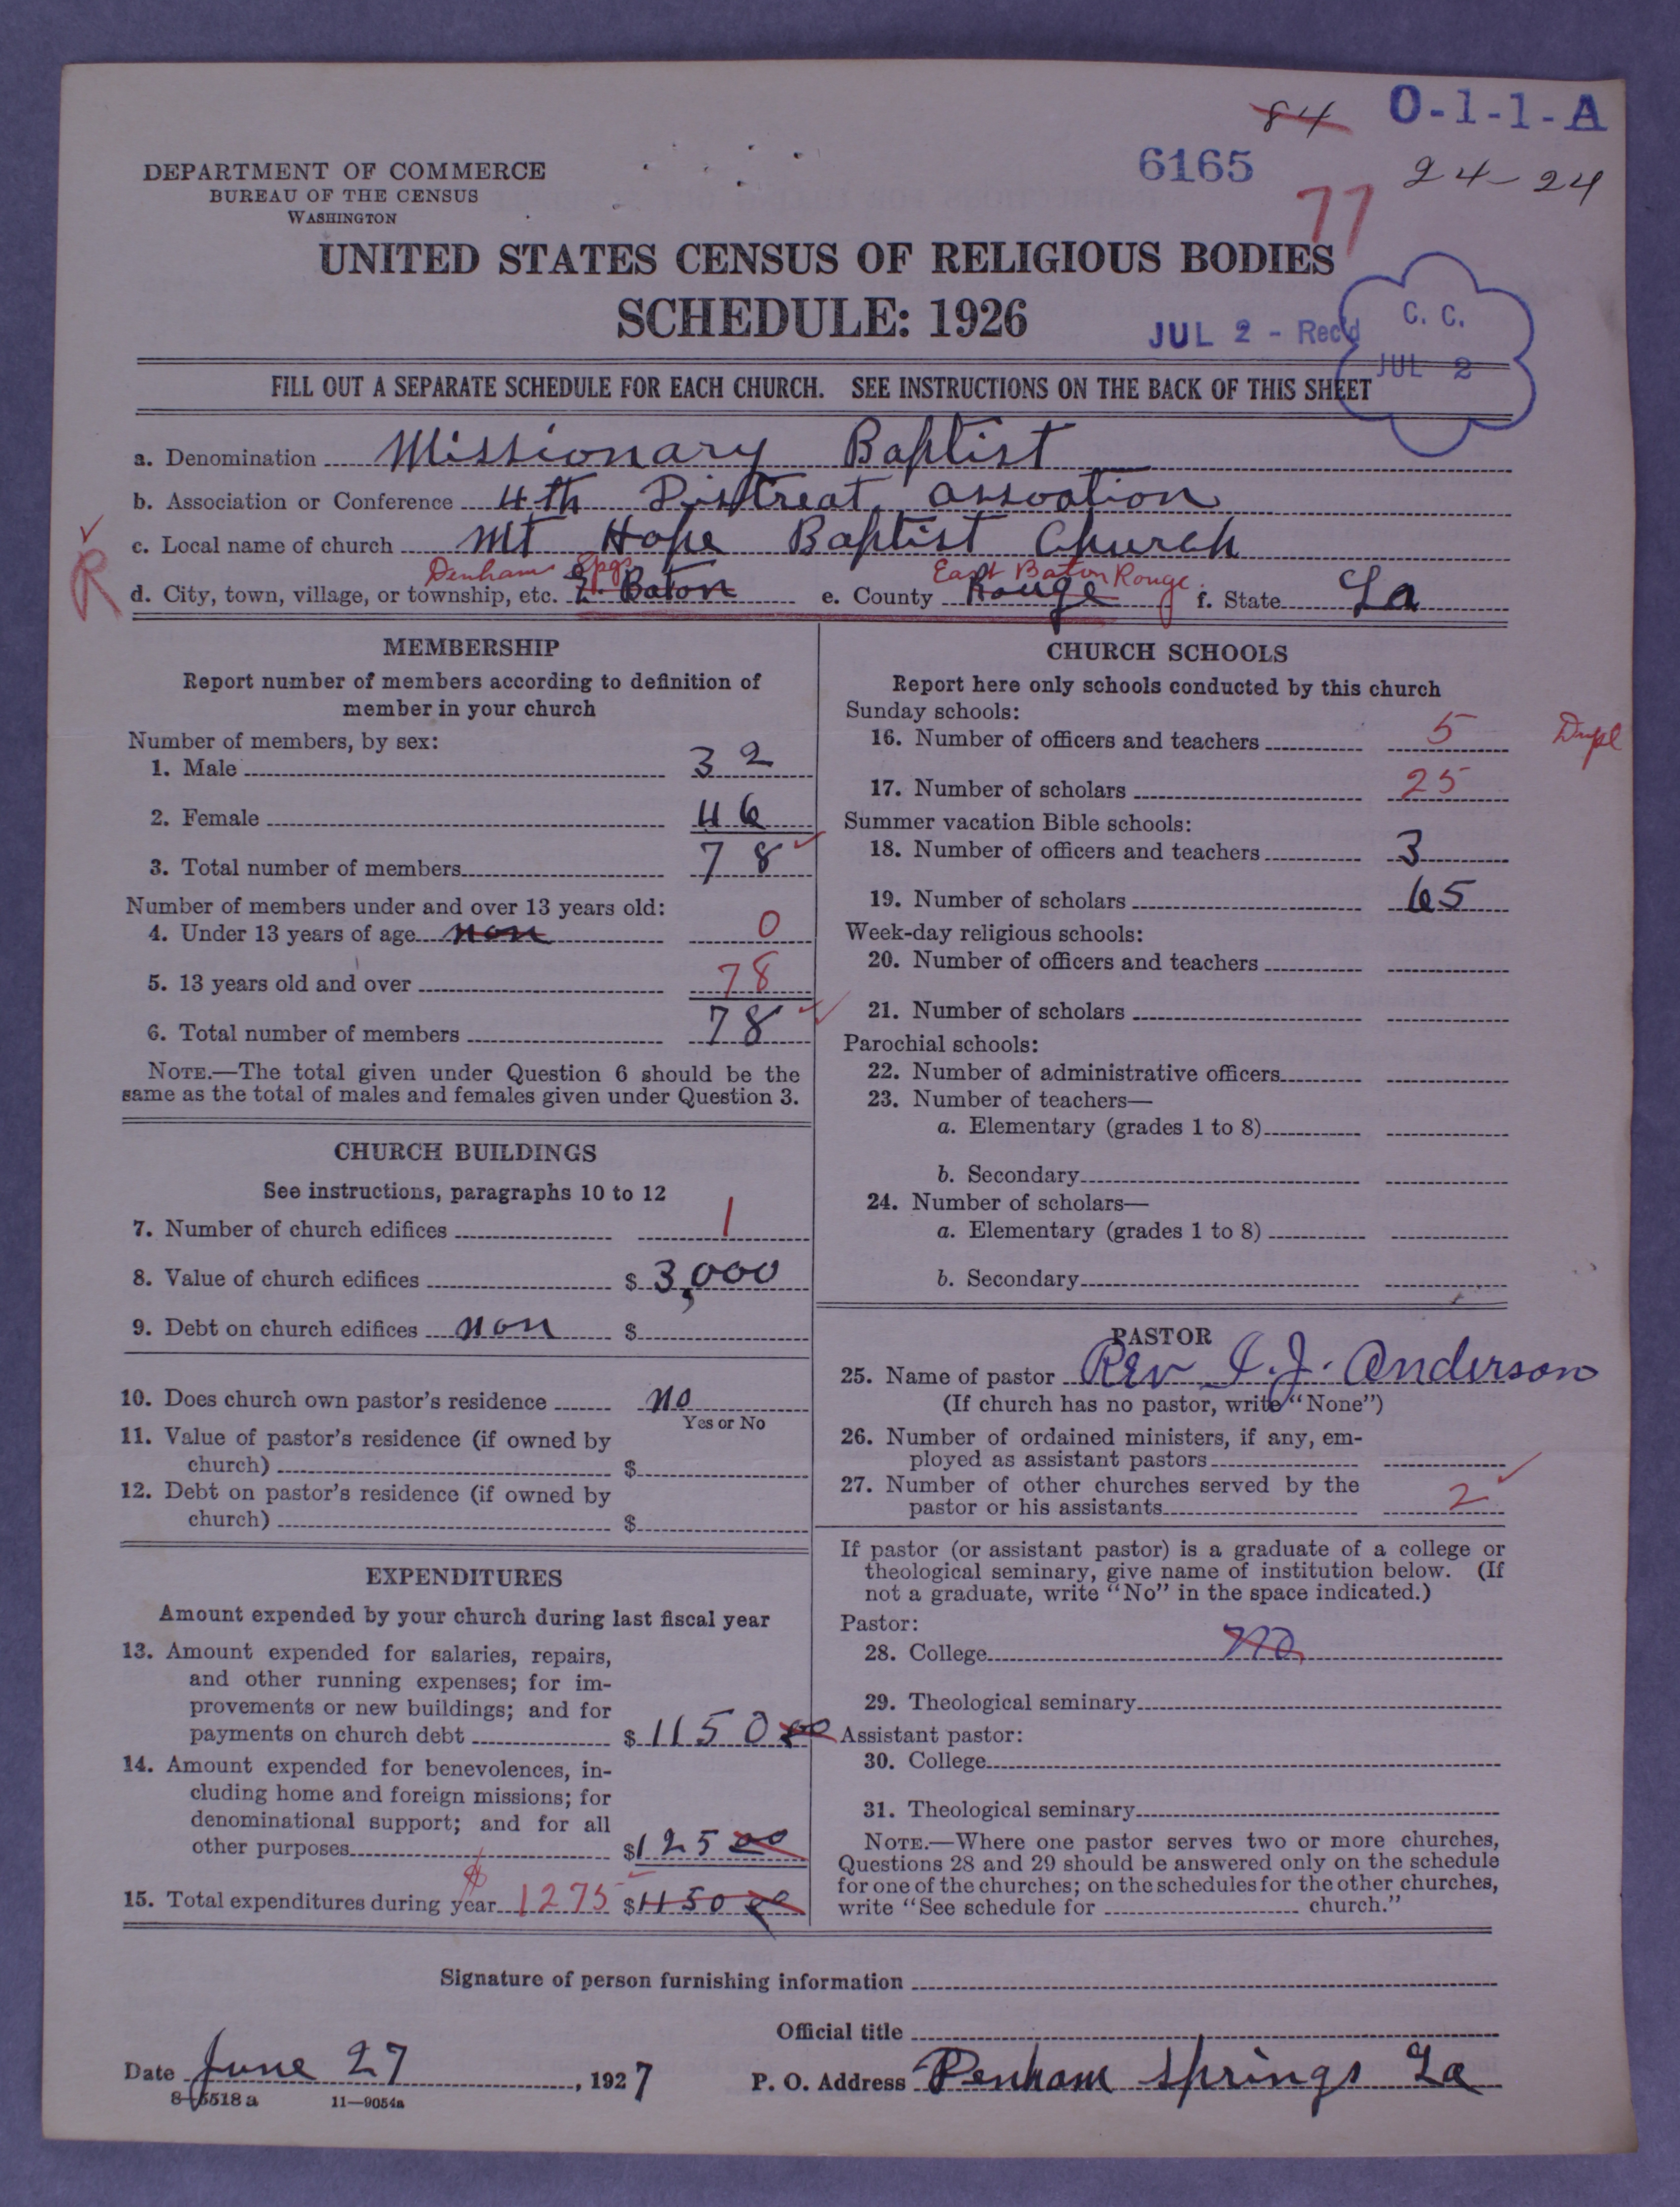 84 O-1-1-A
6165
24-24
77
DEPARTMENT OF COMMERCE
BUREAU OF THE CENSUS
WASHINGTON
UNITED STATES CENSUS OF RELIGIOUS BODIES
SCHEDULE: 1926
JUL 2 - Rec'd
C. C.
JUL 2
FILL OUT A SEPARATE SCHEDULE FOR EACH CHURCH. SEE INSTRUCTIONS ON THE BACK OF THIS SHEET
a. Denomination Missionary Baptist
b. Association or Conference 4th Distreat assoation
c. Local name of church Mt Hope Baptist Church
R
Denham Spgs East Baton Rouge
d. City, town, village, or township, etc. E. Baton e. County Rouge f. State La
MEMBERSHIP
Report number of members according to definition of
member in your church
Number of members, by sex:
1. Male 32
2. Female 46
3. Total number of members 78
Number of members under and over 13 years old:
4. Under 13 years of age non 0
5. 13 years old and over 78
6. Total number of members 78
NOTE.—The total given under Question 6 should be the
same as the total of males and females given under Question 3.
CHURCH BUILDINGS
See instructions, paragraphs 10 to 12
7. Number of church edifices 1
8. Value of church edifices $ 3,000
9. Debt on church edifices non $
10. Does church own pastor's residence no
Yes or No
11. Value of pastor's residence (if owned by
church) $
12. Debt on pastor's residence (if owned by
church) $
EXPENDITURES
Amount expended by your church during last fiscal year
13. Amount expended for salaries, repairs,
and other running expenses; for im-
provements or new buildings; and for
payments on church debt $ 1150 00
14. Amount expended for benevolences, in-
cluding home and foreign missions; for
denominational support; and for all
other purposes $ 125 00
$
15. Total expenditures during year 1275 $ 1150 00
CHURCH SCHOOLS
Report here only schools conducted by this church
Sunday schools:
16. Number of officers and teachers 5 Dupl
17. Number of scholars 25
Summer vacation Bible schools:
18. Number of officers and teachers 3
19. Number of scholars 65
Week-day religious schools:
20. Number of officers and teachers
21. Number of scholars
Parochial schools:
22. Number of administrative officers
23. Number of teachers—
a. Elementary (grades 1 to 8)
b. Secondary
24. Number of scholars—
a. Elementary (grades 1 to 8)
b. Secondary
PASTOR
25. Name of pastor Rev I. J. Anderson
(If church has no pastor, write "None")
26. Number of ordained ministers, if any, em-
ployed as assistant pastors
27. Number of other churches served by the
pastor or his assistants 2
If pastor (or assistant pastor) is a graduate of a college or
theological seminary, give name of institution below. (If
not a graduate, write "No" in the space indicated.)
Pastor:
28. College no
29. Theological seminary
Assistant pastor:
30. College
31. Theological seminary
NOTE.—Where one pastor serves two or more churches,
Questions 28 and 29 should be answered only on the schedule
for one of the churches; on the schedules for the other churches,
write "See schedule for church."
Signature of person furnishing information
Official title
Date June 27, 1927 P. O. Address Denham Springs La
8-5518 a 11-9054a